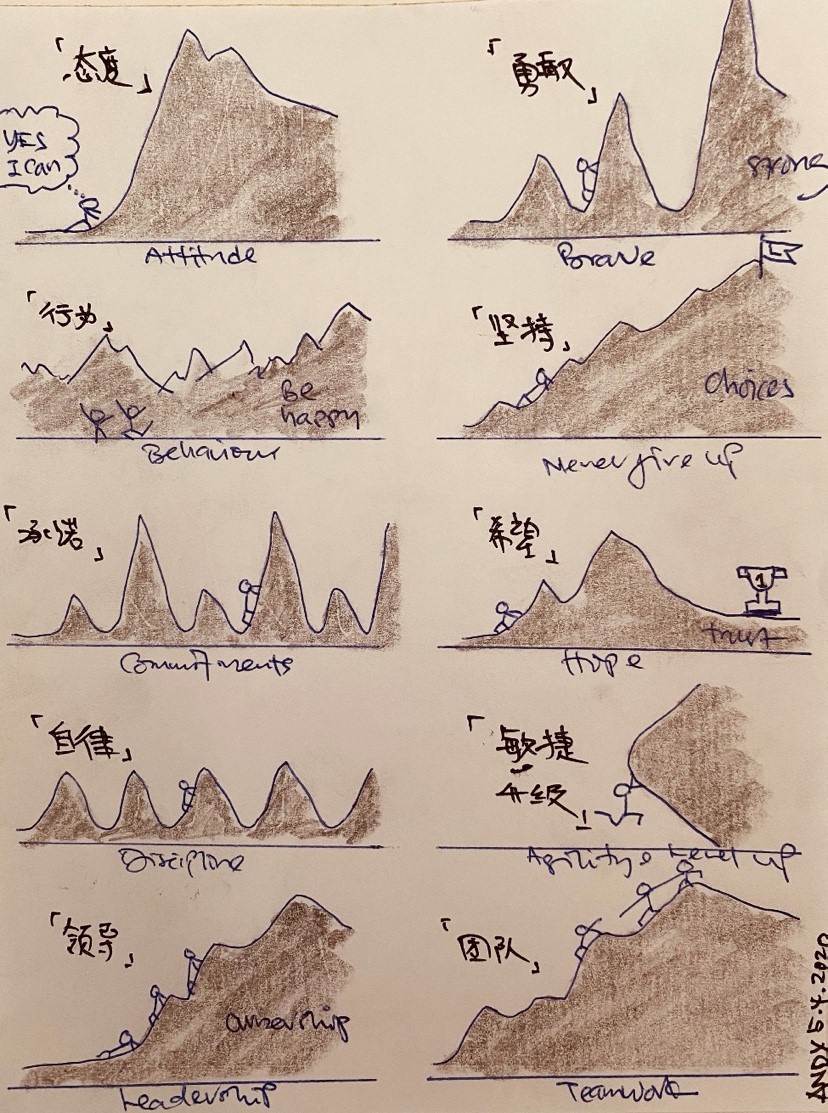 「态度」
YES
I can
Attitude
「勇敢」
strong
Brave
「行为」
Be
happy
Behaviour
「坚持」
Choices
Never give up
「承诺」
Commitments
「希望」
1
trust
Hope
「自律」
Discipline
「敏捷
升级」
Agility & Level up
「领导」
ownership
Leadership
「团队」
Teamwork
ANDY 5.4.2020